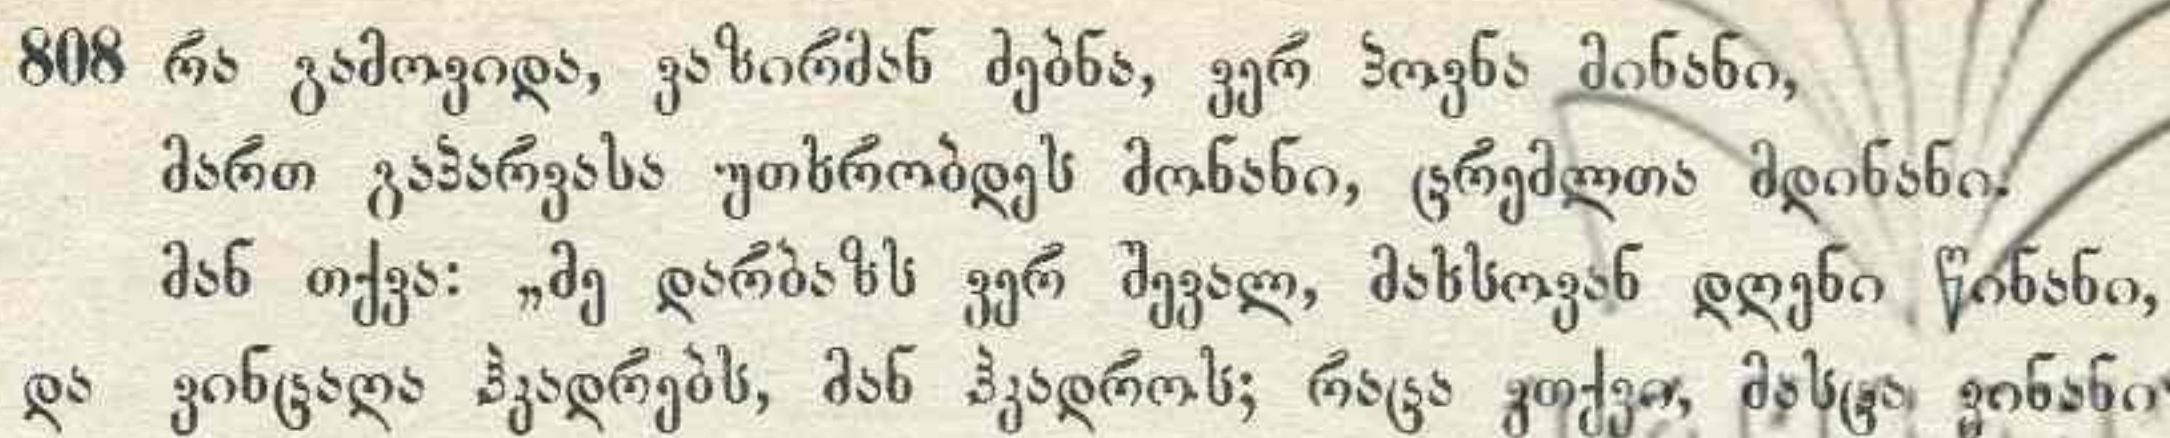 808 რა გამოვიდა, ვაზირმან ძებნა, ვერ პოვნა მინანი,
მართ გაპარვასა უთხრობდეს მონანი, ცრემლთა მდინანი.
მან თქვა: „მე დარბაზს ვერ შევალ, მახსოვან დღენი წინანი,
და ვინცაღა ჰკადრებს, მან ჰკადროს; რაცა ვთქვი, მასცა ვინანი